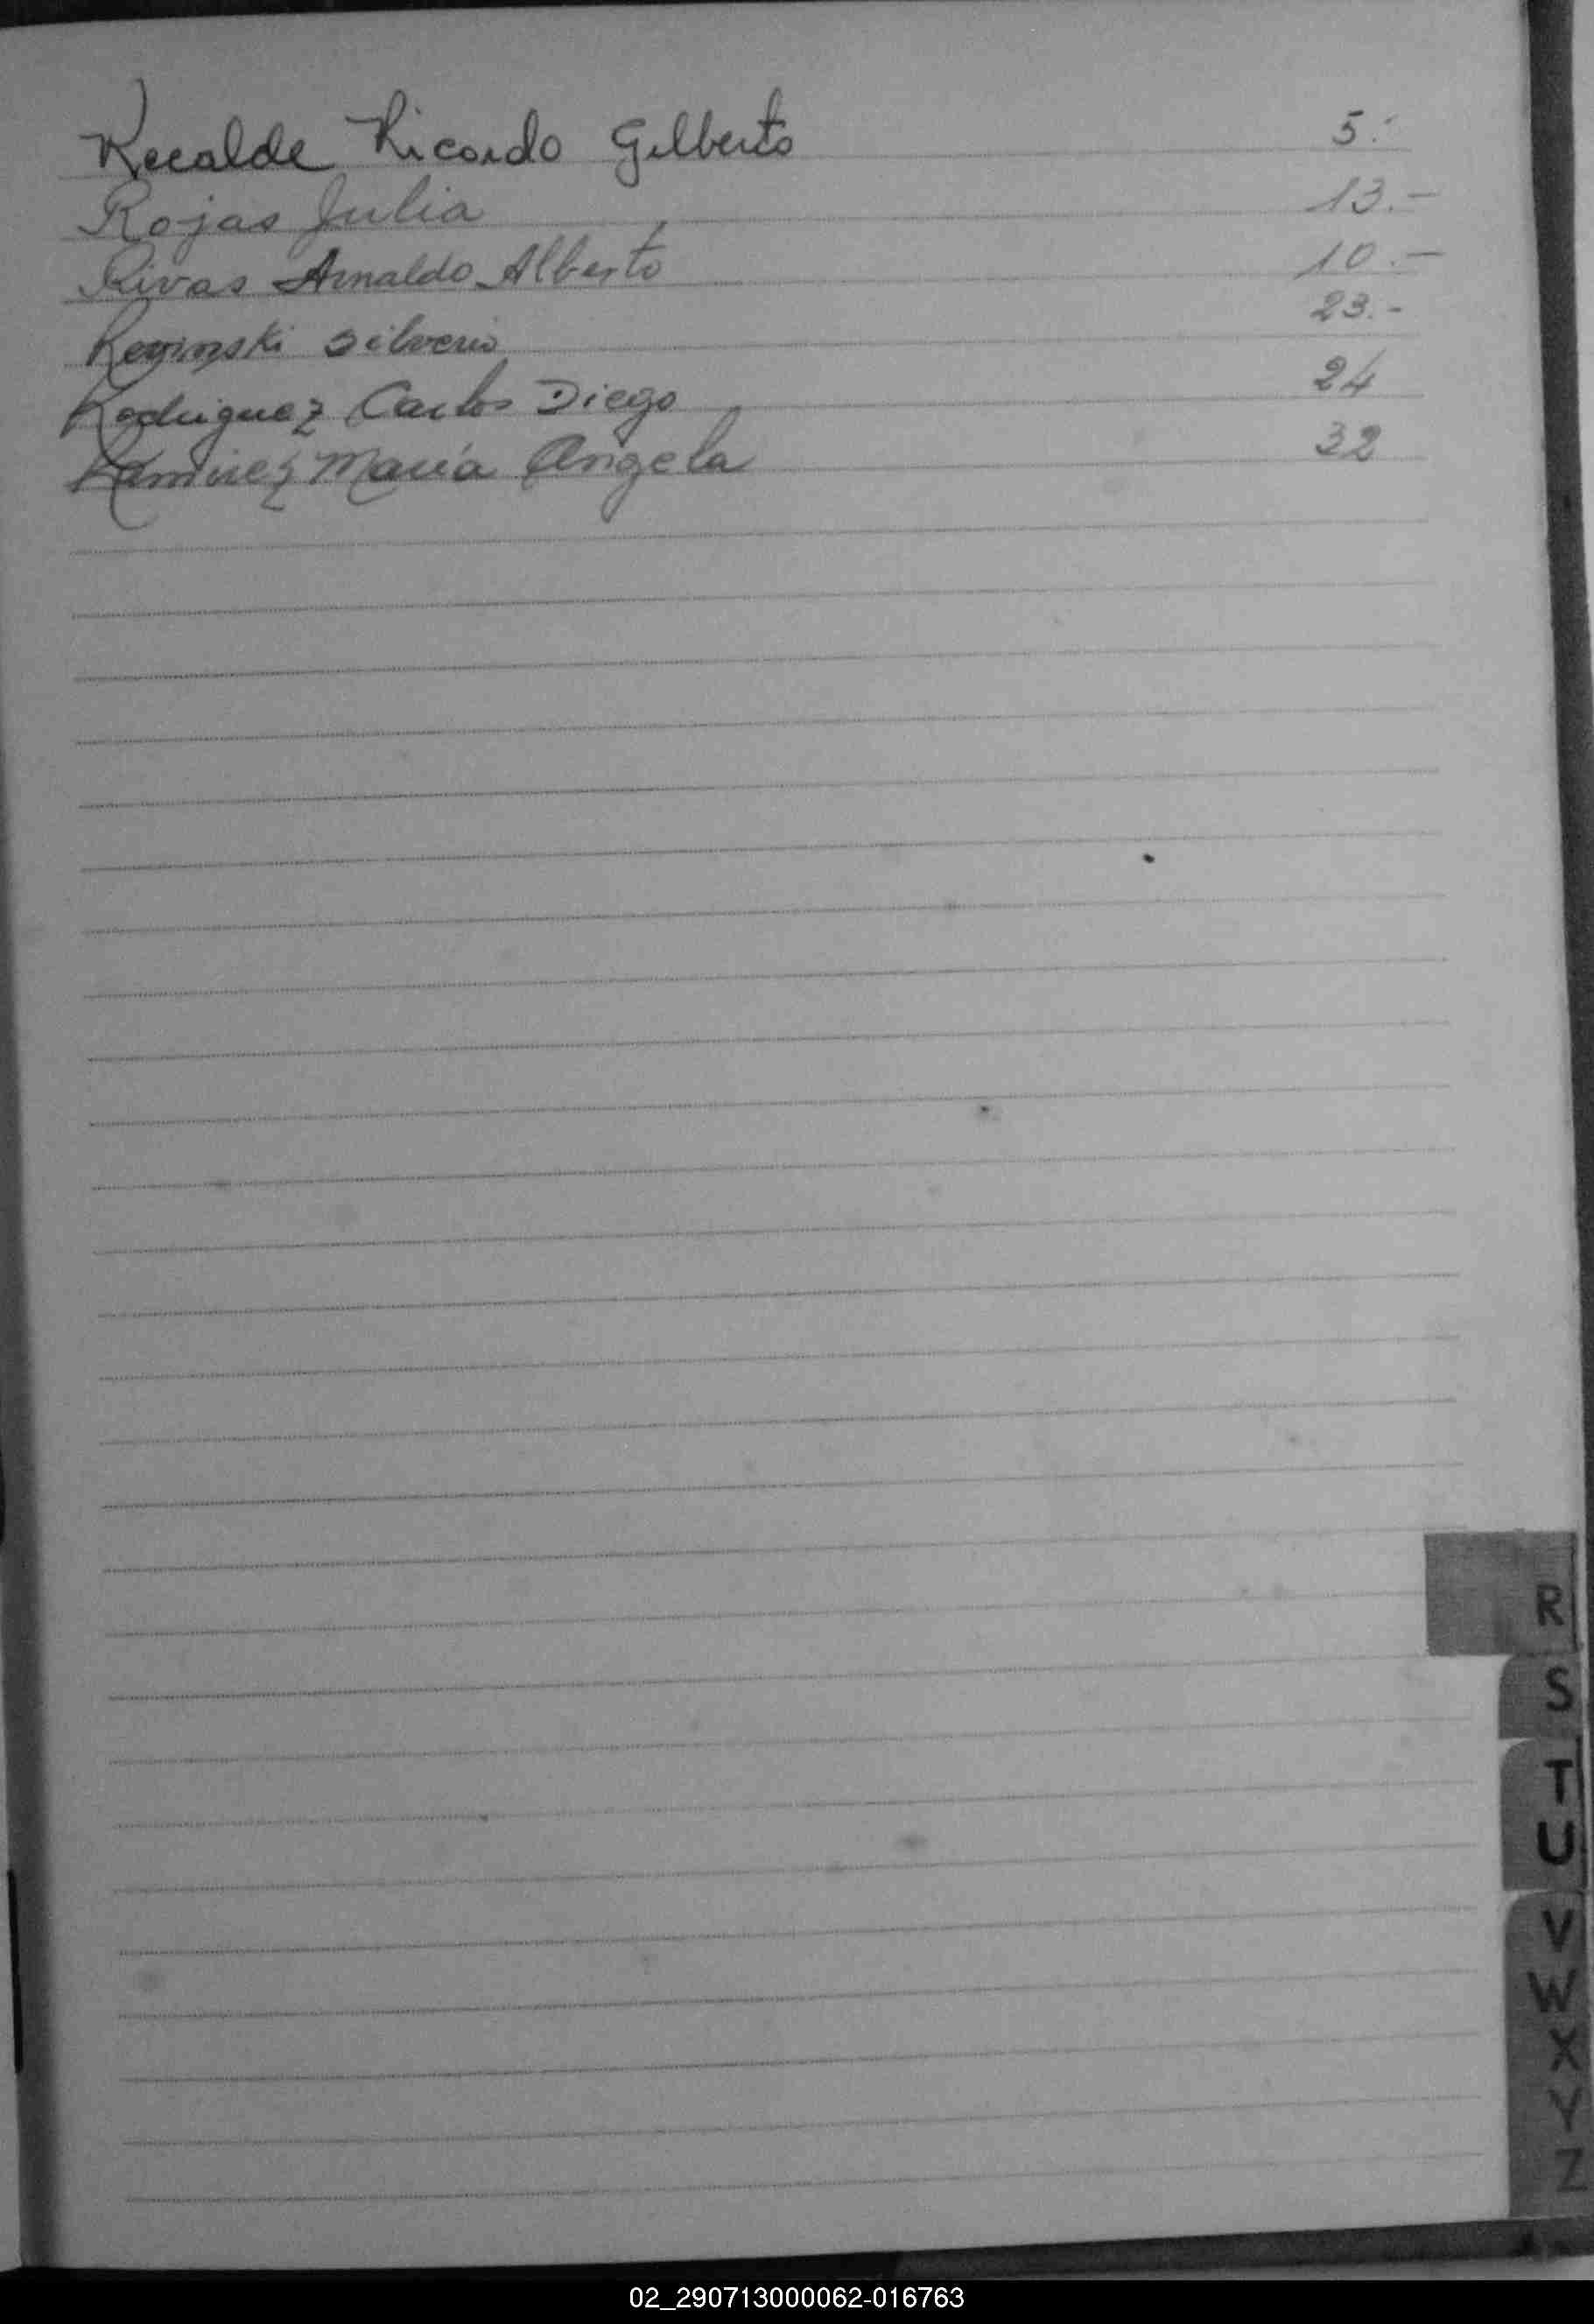 Recalde Ricardo Gilberto 5.-
Rojas Julia 13.-
Rivas Arnaldo Alberto 10.-
Silverio 23.-
Rodriguez Carlos Diego 24
Ramirez María Angela 32
R
S
T
U
V
W
X
Y
Z
02_290713000062-016763